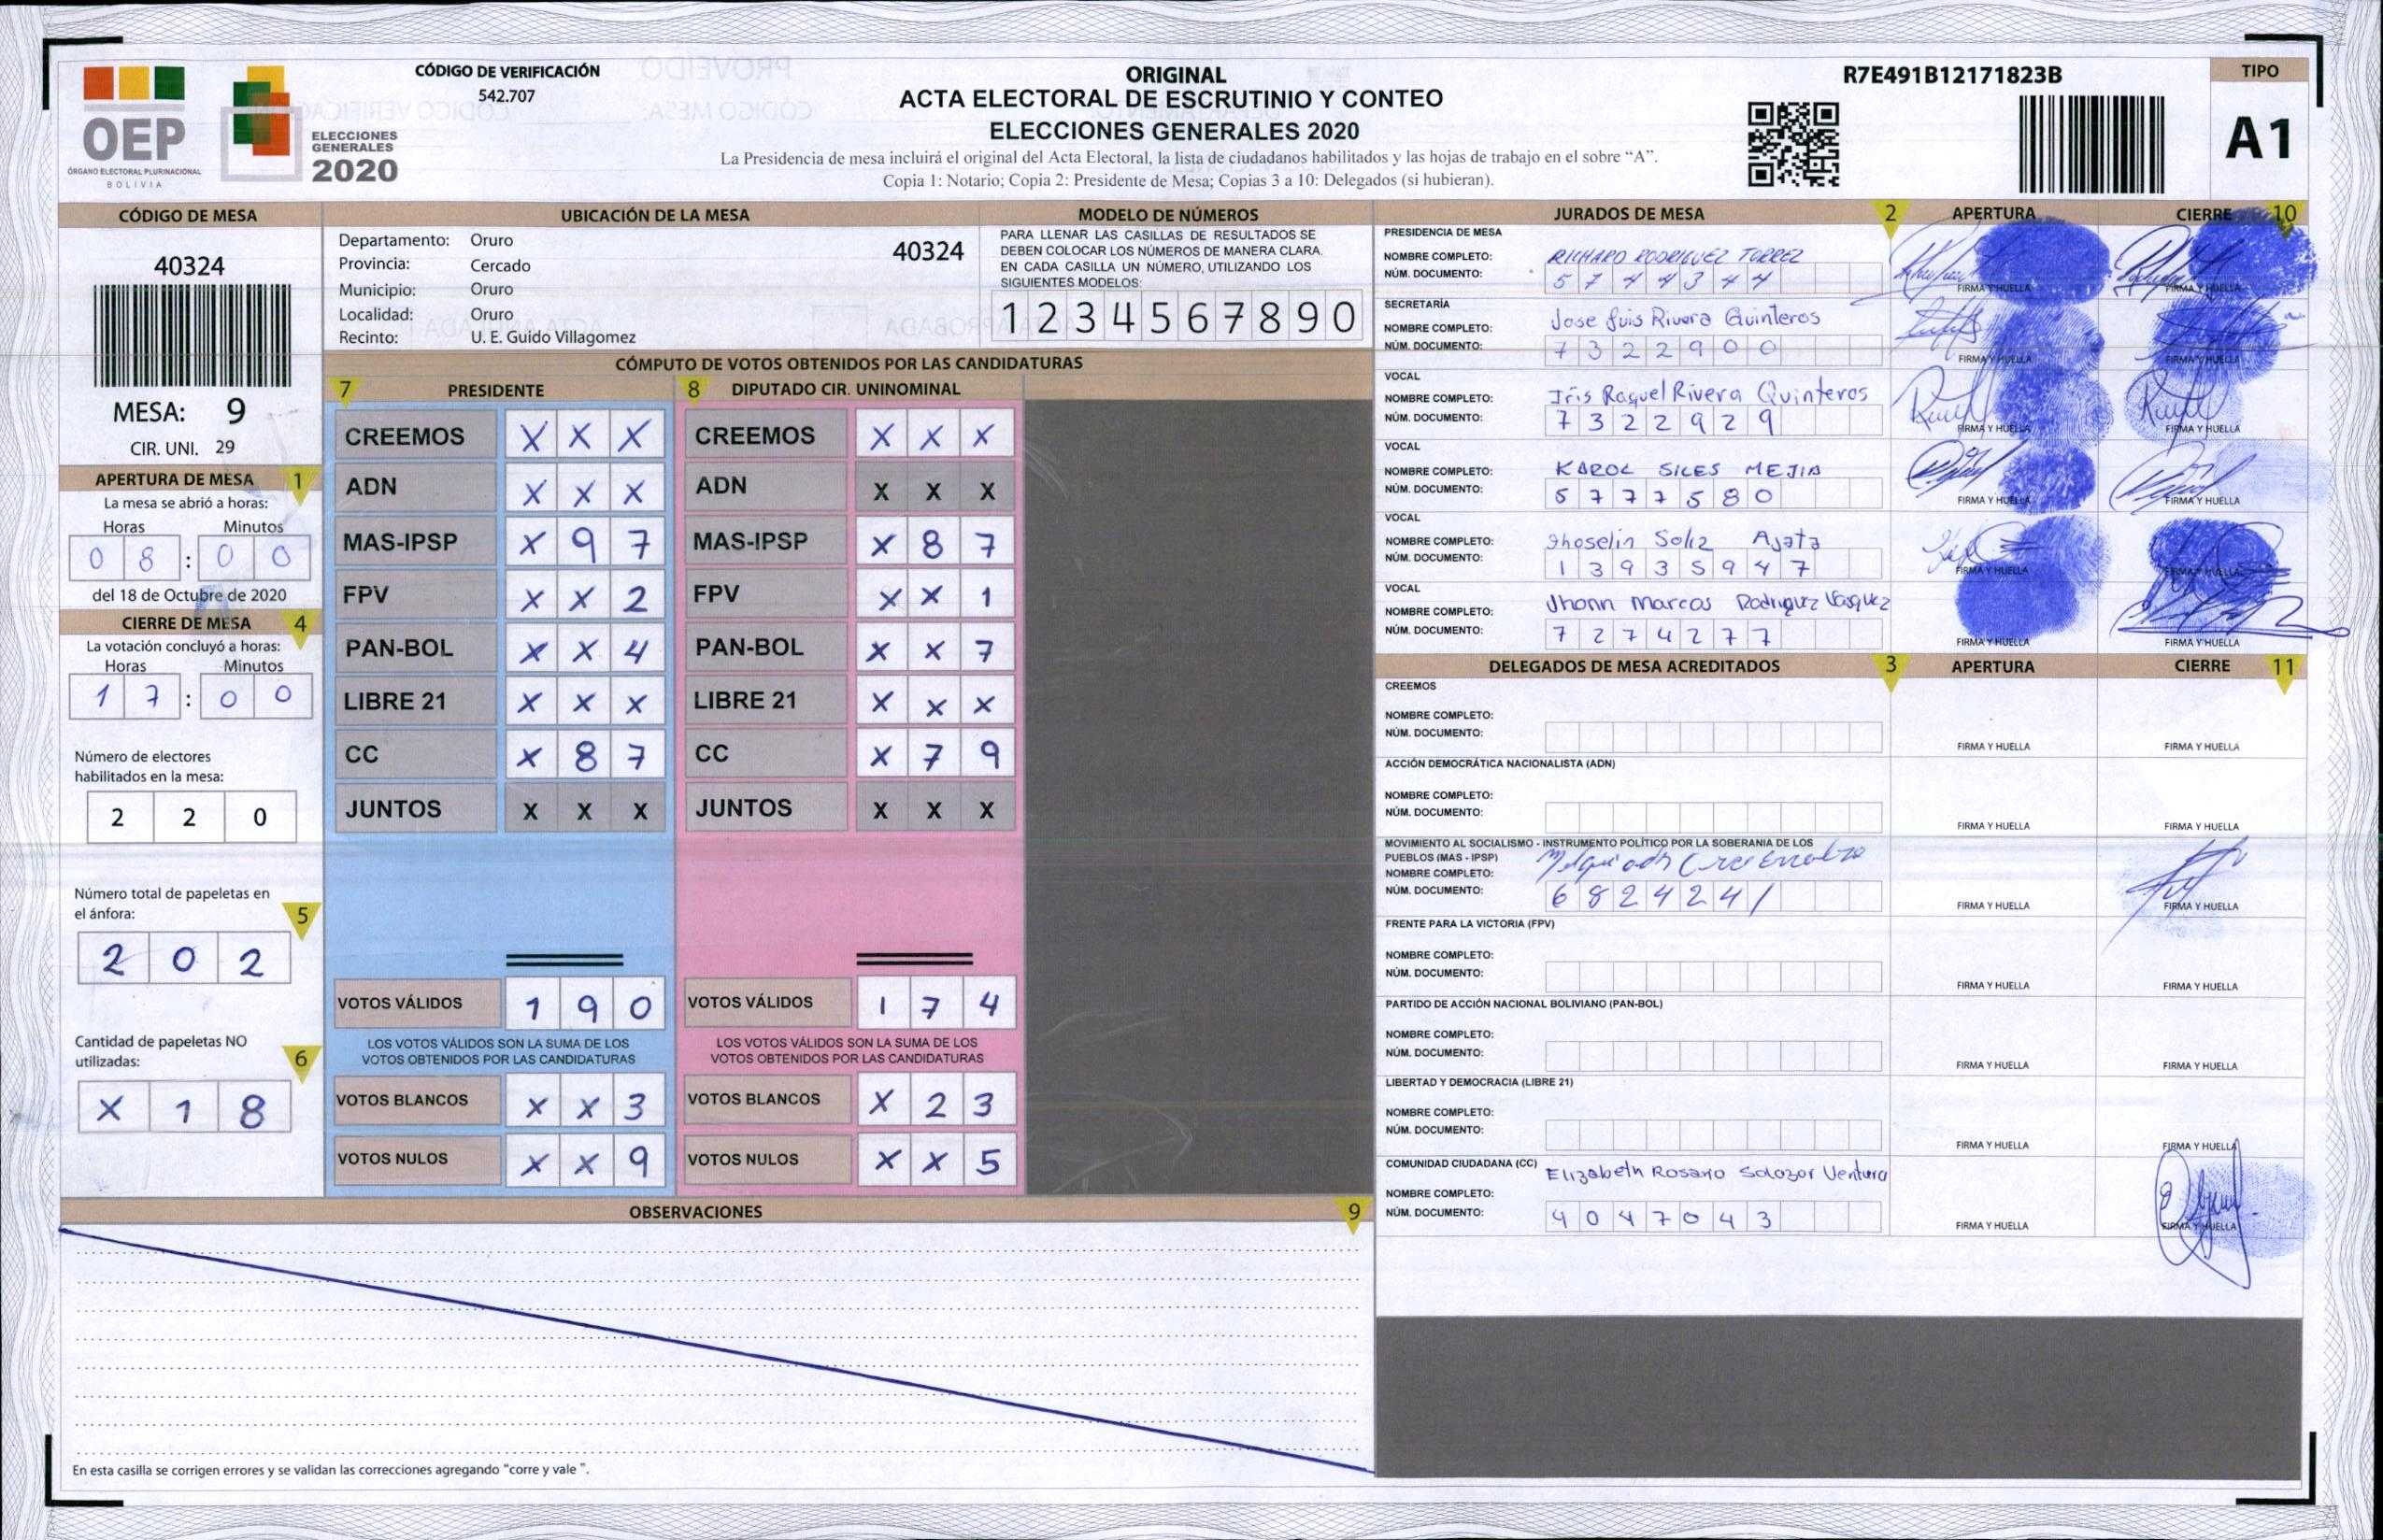 OEP
ÓRGANO ELECTORAL PLURINACIONAL
BOLIVIA
ELECCIONES
GENERALES
2020
CÓDIGO DE VERIFICACIÓN
542.707
ORIGINAL
ACTA ELECTORAL DE ESCRUTINIO Y CONTEO
ELECCIONES GENERALES 2020
La Presidencia de mesa incluirá el original del Acta Electoral, la lista de ciudadanos habilitados y las hojas de trabajo en el sobre “A”.
Copia 1: Notario; Copia 2: Presidente de Mesa; Copias 3 a 10: Delegados (si hubieran).
R7E491B12171823B
TIPO
A1
CÓDIGO DE MESA
40324
MESA: 9
CIR. UNI. 29
APERTURA DE MESA 1
La mesa se abrió a horas:
Horas Minutos
0 8 : 0 0
del 18 de Octubre de 2020
CIERRE DE MESA 4
La votación concluyó a horas:
Horas Minutos
1 7 : 0 0
Número de electores
habilitados en la mesa:
2 2 0
Número total de papeletas en
el ánfora: 5
2 0 2
Cantidad de papeletas NO
utilizadas: 6
X 1 8
UBICACIÓN DE LA MESA
Departamento: Oruro 40324
Provincia: Cercado
Municipio: Oruro
Localidad: Oruro
Recinto: U. E. Guido Villagomez
MODELO DE NÚMEROS
PARA LLENAR LAS CASILLAS DE RESULTADOS SE
DEBEN COLOCAR LOS NÚMEROS DE MANERA CLARA.
EN CADA CASILLA UN NÚMERO, UTILIZANDO LOS
SIGUIENTES MODELOS:
1 2 3 4 5 6 7 8 9 0
CÓMPUTO DE VOTOS OBTENIDOS POR LAS CANDIDATURAS
7 PRESIDENTE 8 DIPUTADO CIR. UNINOMINAL
CREEMOS X X X CREEMOS X X X
ADN X X X ADN X X X
MAS-IPSP X 9 7 MAS-IPSP X 8 7
FPV X X 2 FPV X X 1
PAN-BOL X X 4 PAN-BOL X X 7
LIBRE 21 X X X LIBRE 21 X X X
CC X 8 7 CC X 7 9
JUNTOS X X X JUNTOS X X X
VOTOS VÁLIDOS 1 9 0 VOTOS VÁLIDOS 1 7 4
LOS VOTOS VÁLIDOS SON LA SUMA DE LOS LOS VOTOS VÁLIDOS SON LA SUMA DE LOS
VOTOS OBTENIDOS POR LAS CANDIDATURAS VOTOS OBTENIDOS POR LAS CANDIDATURAS
VOTOS BLANCOS X X 3 VOTOS BLANCOS X 2 3
VOTOS NULOS X X 9 VOTOS NULOS X X 5
OBSERVACIONES 9
En esta casilla se corrigen errores y se validan las correcciones agregando "corre y vale ".
JURADOS DE MESA 2 APERTURA CIERRE 10
PRESIDENCIA DE MESA
NOMBRE COMPLETO: RICHARD RODRIGUEZ TORREZ
NÚM. DOCUMENTO: 5 7 4 4 3 4 4 FIRMA Y HUELLA FIRMA Y HUELLA
SECRETARÍA
NOMBRE COMPLETO: Jose Luis Rivera Quinteros
NÚM. DOCUMENTO: 7 3 2 2 9 0 0 FIRMA Y HUELLA FIRMA Y HUELLA
VOCAL
NOMBRE COMPLETO: Iris Raquel Rivera Quinteros
NÚM. DOCUMENTO: 7 3 2 2 9 2 9 FIRMA Y HUELLA FIRMA Y HUELLA
VOCAL
NOMBRE COMPLETO: KAROL SILES MEJIA
NÚM. DOCUMENTO: 5 7 7 7 5 8 0 FIRMA Y HUELLA FIRMA Y HUELLA
VOCAL
NOMBRE COMPLETO: Jhoselin Soliz Ajata
NÚM. DOCUMENTO: 1 3 9 3 5 9 4 7 FIRMA Y HUELLA FIRMA Y HUELLA
VOCAL
NOMBRE COMPLETO: Jhonn Marcos Rodriguez Vasquez
NÚM. DOCUMENTO: 7 2 7 4 2 7 7 FIRMA Y HUELLA FIRMA Y HUELLA
DELEGADOS DE MESA ACREDITADOS 3 APERTURA CIERRE 11
CREEMOS
NOMBRE COMPLETO:
NÚM. DOCUMENTO: FIRMA Y HUELLA FIRMA Y HUELLA
ACCIÓN DEMOCRÁTICA NACIONALISTA (ADN)
NOMBRE COMPLETO:
NÚM. DOCUMENTO: FIRMA Y HUELLA FIRMA Y HUELLA
MOVIMIENTO AL SOCIALISMO - INSTRUMENTO POLÍTICO POR LA SOBERANIA DE LOS
PUEBLOS (MAS - IPSP)
NOMBRE COMPLETO:
NÚM. DOCUMENTO: 6 8 2 4 2 4 1 FIRMA Y HUELLA FIRMA Y HUELLA
FRENTE PARA LA VICTORIA (FPV)
NOMBRE COMPLETO:
NÚM. DOCUMENTO: FIRMA Y HUELLA FIRMA Y HUELLA
PARTIDO DE ACCIÓN NACIONAL BOLIVIANO (PAN-BOL)
NOMBRE COMPLETO:
NÚM. DOCUMENTO: FIRMA Y HUELLA FIRMA Y HUELLA
LIBERTAD Y DEMOCRACIA (LIBRE 21)
NOMBRE COMPLETO:
NÚM. DOCUMENTO: FIRMA Y HUELLA FIRMA Y HUELLA
COMUNIDAD CIUDADANA (CC) Elizabeth Rosario Salazar Ventura
NOMBRE COMPLETO:
NÚM. DOCUMENTO: 4 0 4 7 0 4 3 FIRMA Y HUELLA FIRMA Y HUELLA